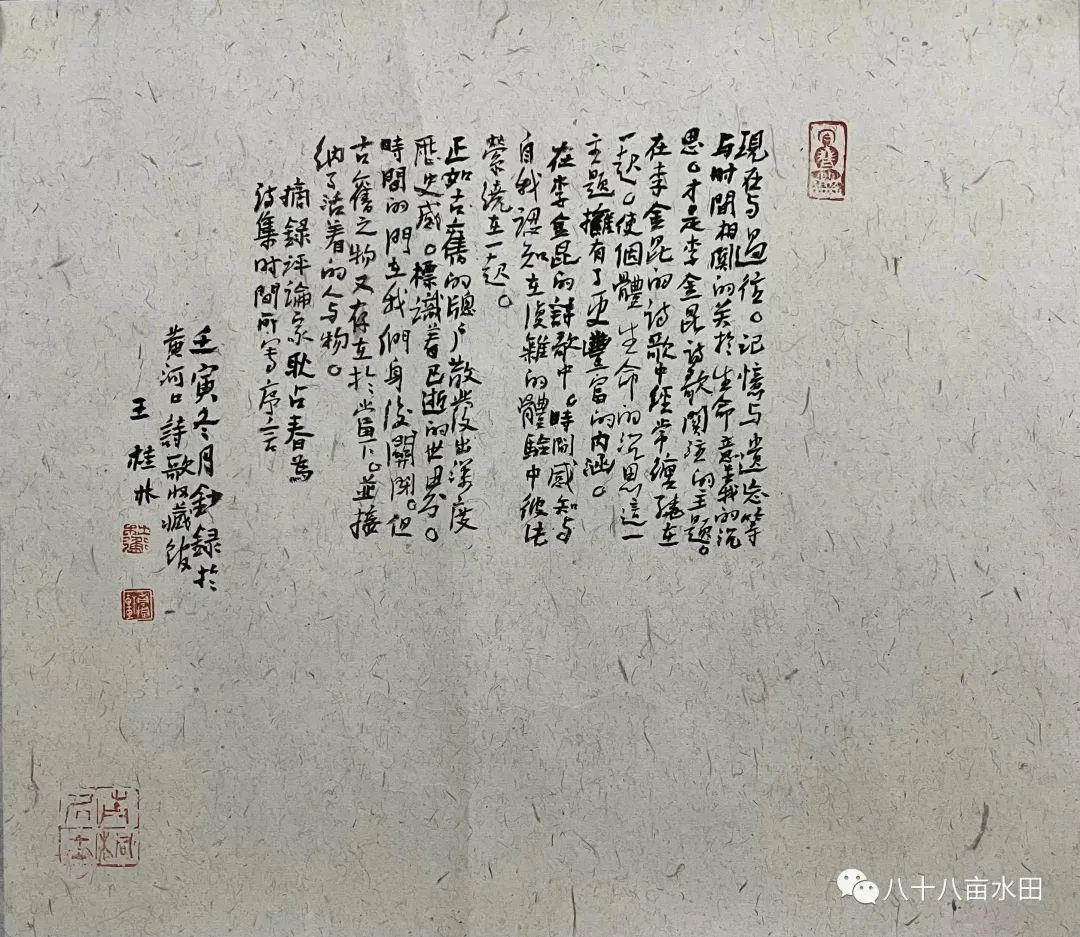 現在与過往。记憶与遗忘等
与时間相関的关於生命意義的沉
思。才是李金昆诗歌関注的主题。
在李金昆的诗歌中经常缠繞在
一起。使個體生命的沉思這一
主题擁有了更豐富的内涵。
在李金昆的詩歌中。時間感知与
自我認知在復雜的體驗中彼此
縈繞在一起。
正如古舊的牕户散發出深度
歷史感。標識着已逝的世界。
時間的門在我們身後關閉。但
古舊之物又存在於當下。並接
纳了活着的人与物。
摘錄评論家耿占春為
诗集时間所写序言
壬寅冬月鈔録於
黄河口詩歌收藏館
王桂林
八十八亩水田